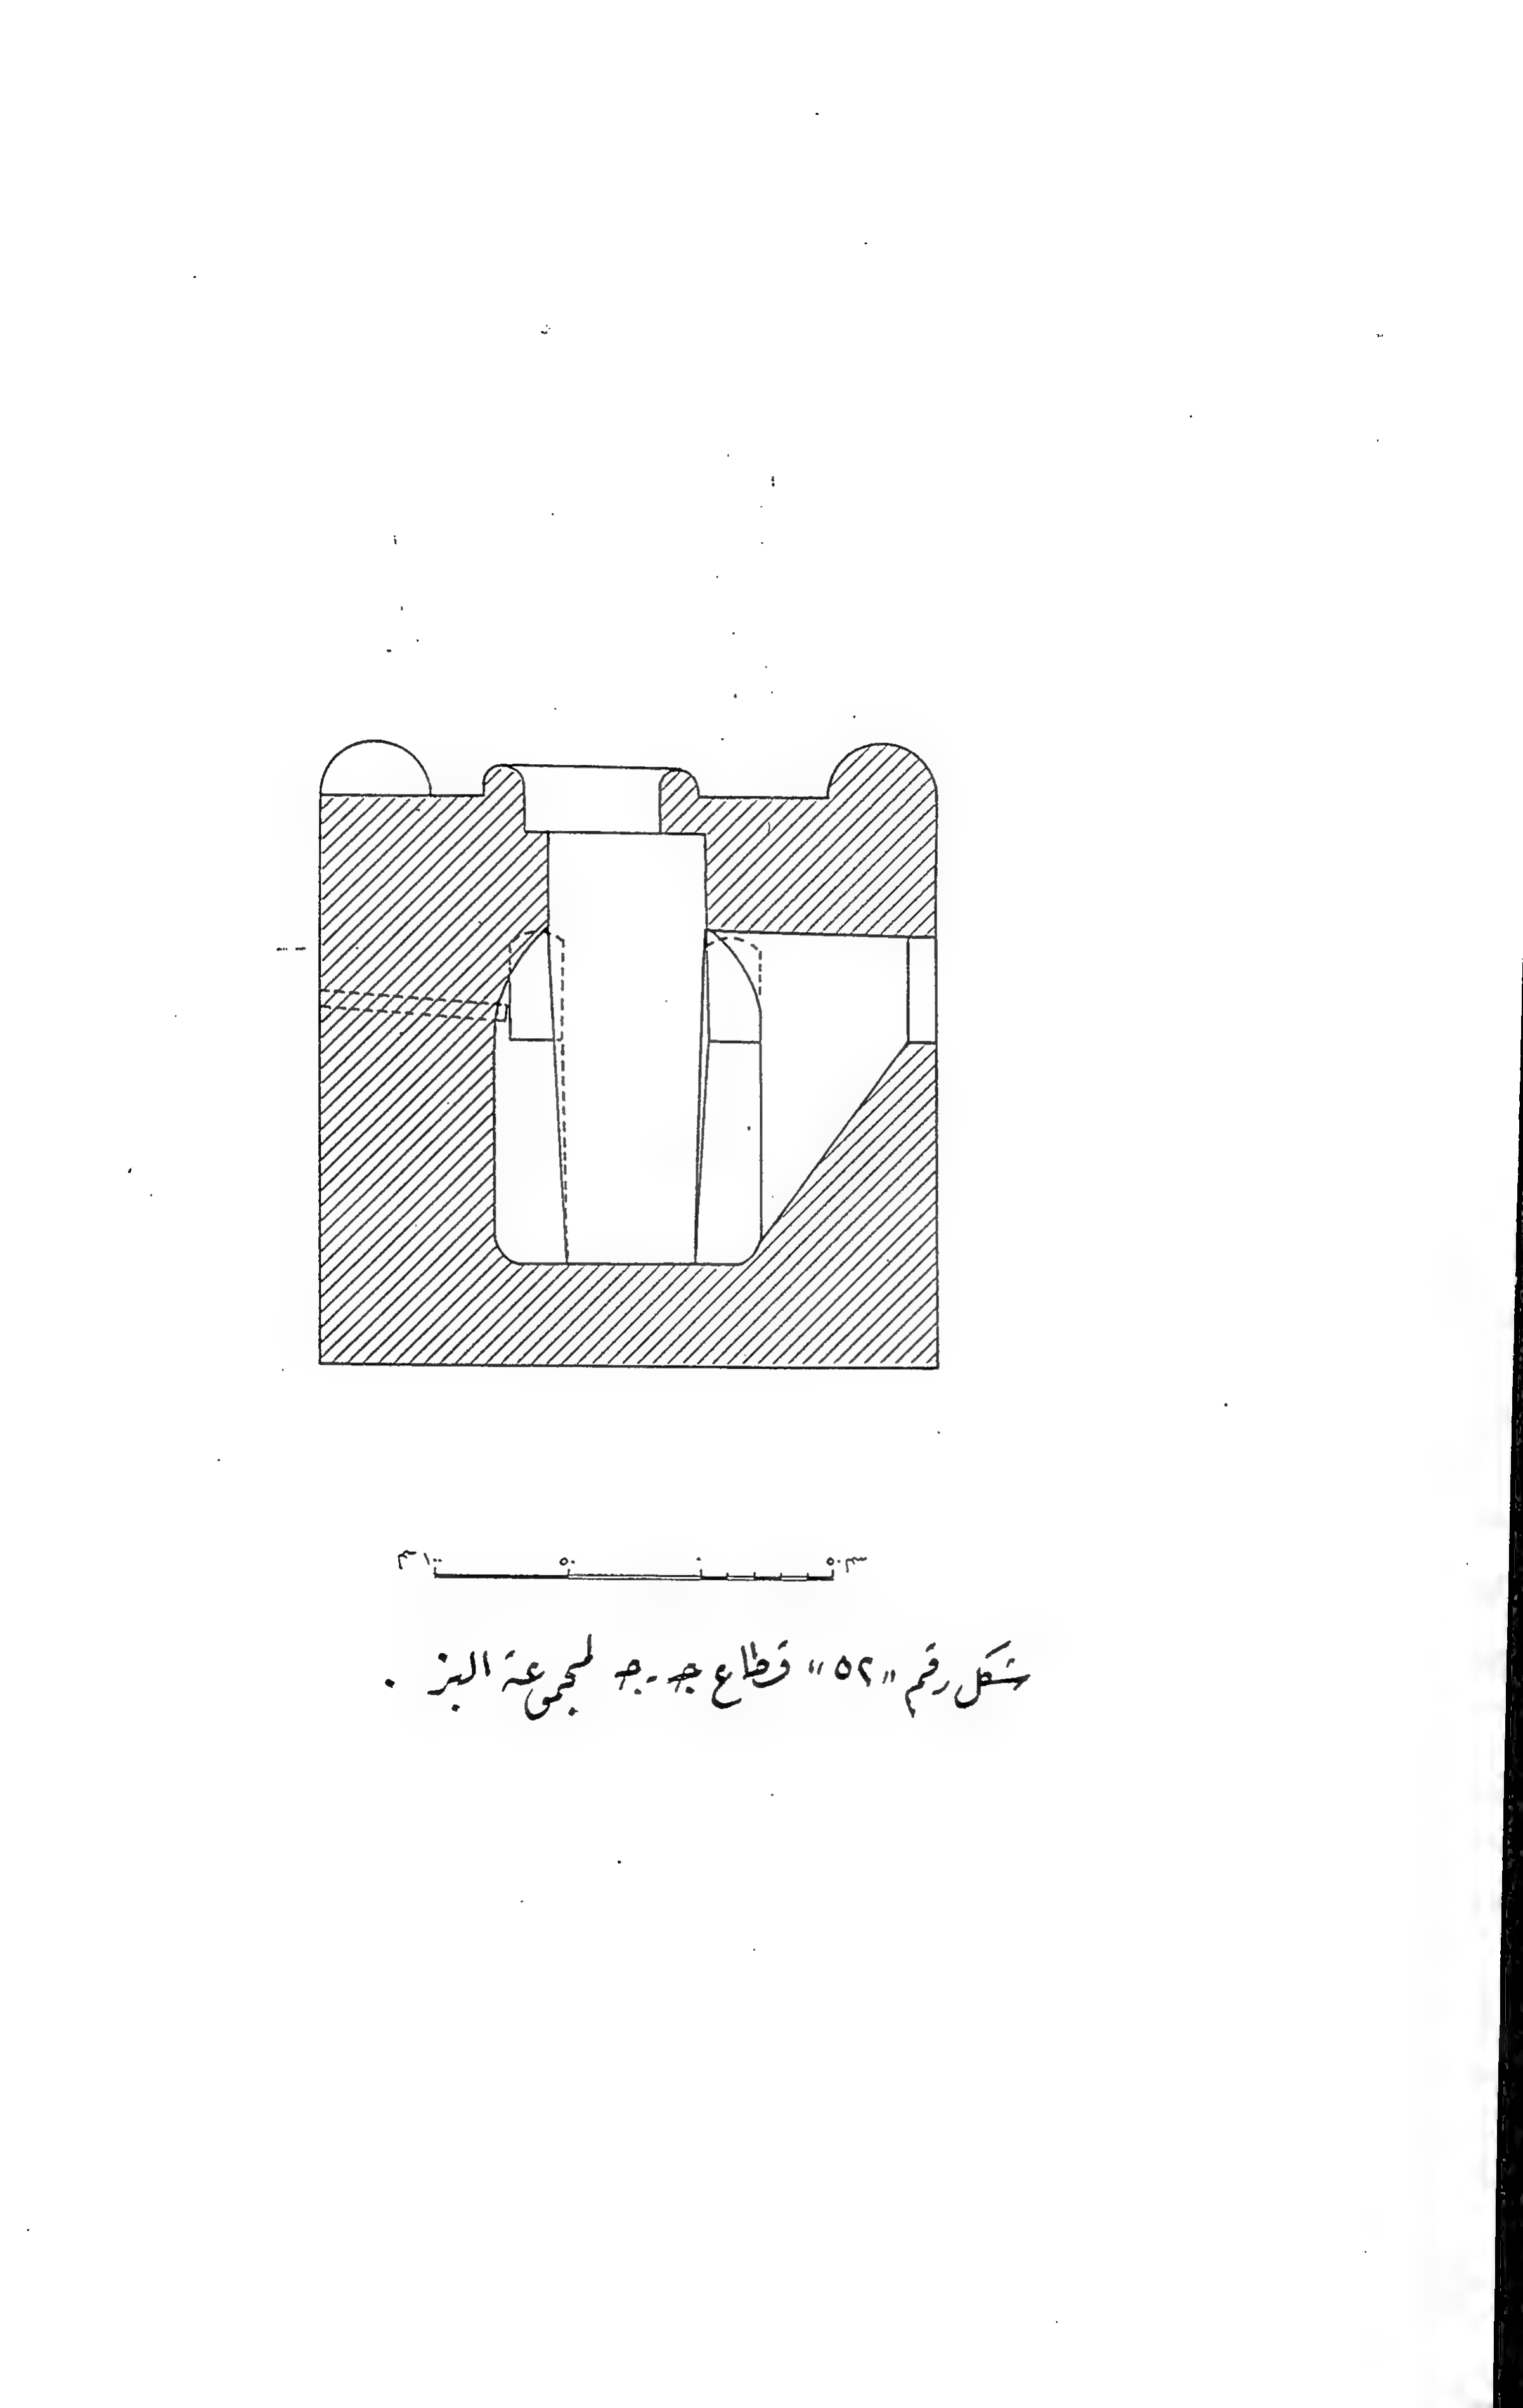 ٥٠ سم ٠ ٥٠ ١٠٠ سم
شكل رقم "٥٢" قطاع جـ-جـ لمجموعة البز .